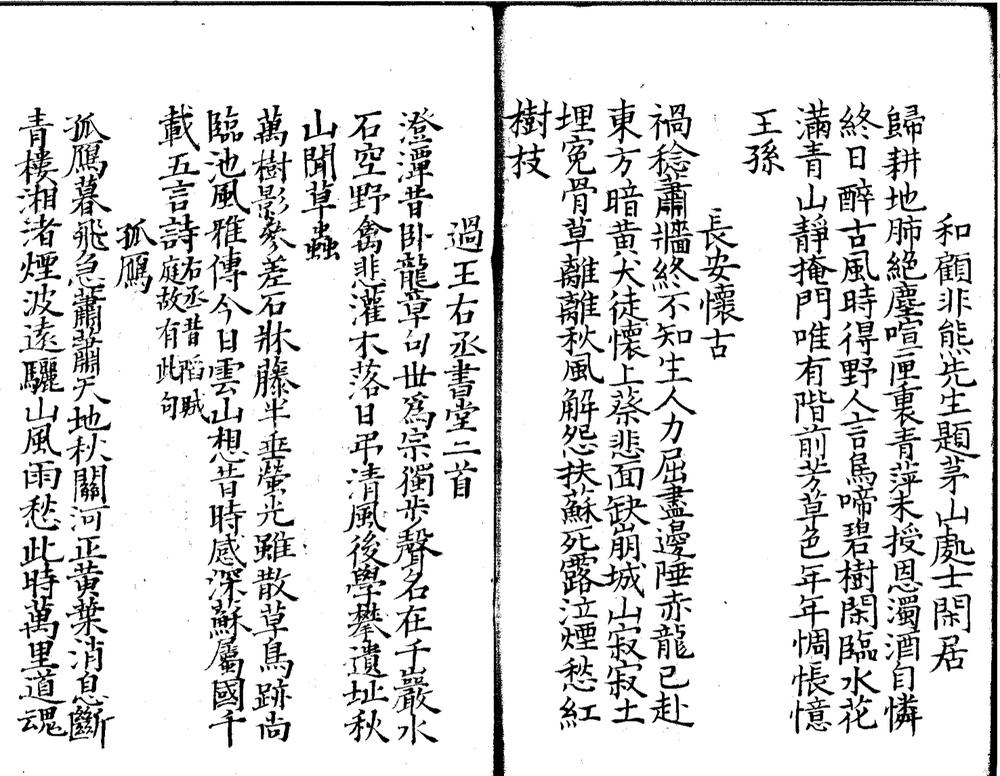 和顧非熊先生題茅山處士閑居
歸耕地肺絕塵喧匣裏青萍未授恩濁酒自憐
終日醉古風時得野人言鳥啼碧樹閑臨水花
滿青山靜掩門唯有階前芳草色年年惆悵憶
王孫
長安懷古
禍稔蕭牆終不知生人力屈盡邊陲赤龍已赴
東方暗黃犬徒懷上蔡悲面缺崩城山寂寂土
埋冤骨草離離秋風解怨扶蘇死露泣煙愁紅
樹枝
過王右丞書堂二首
澄潭昔臥龍章句世為宗獨步聲名在千巖水
石空野禽悲灌木落日弔清風後學攀遺址秋
山聞草蟲
萬樹影參差石牀藤半垂螢光雖散草鳥跡尚
臨池風雅傳今日雲山想昔時感深蘇屬國千
載五言詩右丞昔陷賊庭故有此句
孤鴈
孤鴈暮飛急蕭蕭天地秋關河正黃葉消息斷
青樓湘渚煙波遠驪山風雨愁此時萬里道魂